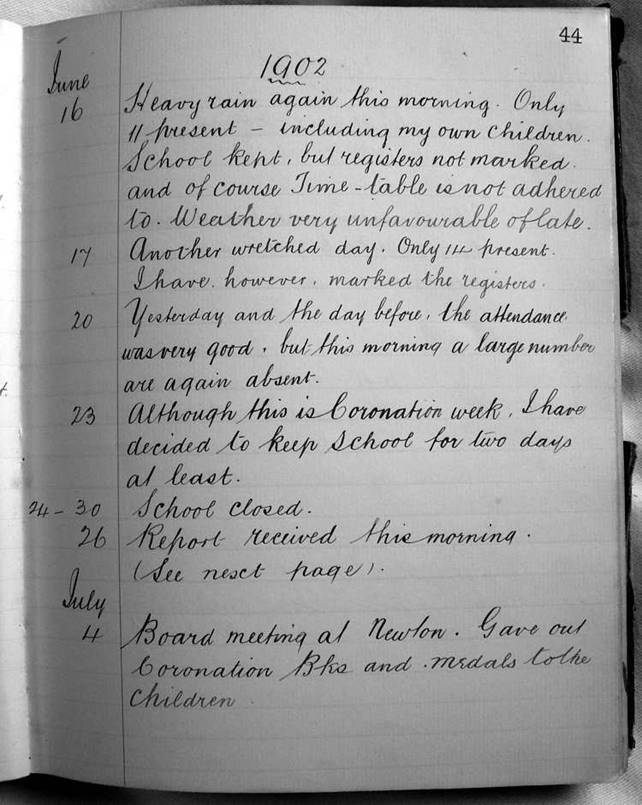 44
1902
June
16 Heavy rain again this morning. Only
11 present - including my own children.
School kept, but registers not marked
and of course Time-table is not adhered
to. Weather very unfavourable of late.
17 Another wretched day. Only 14 present.
I have, however, marked the registers.
20 Yesterday and the day before, the attendance
was very good, but this morning a large number
are again absent.
23 Although this is Coronation week, I have
decided to keep School for two days
at least.
24-30 School closed.
26 Report received this morning.
(See next page).
July
4 Board meeting at Newton. Gave out
Coronation Bks and medals to the
children